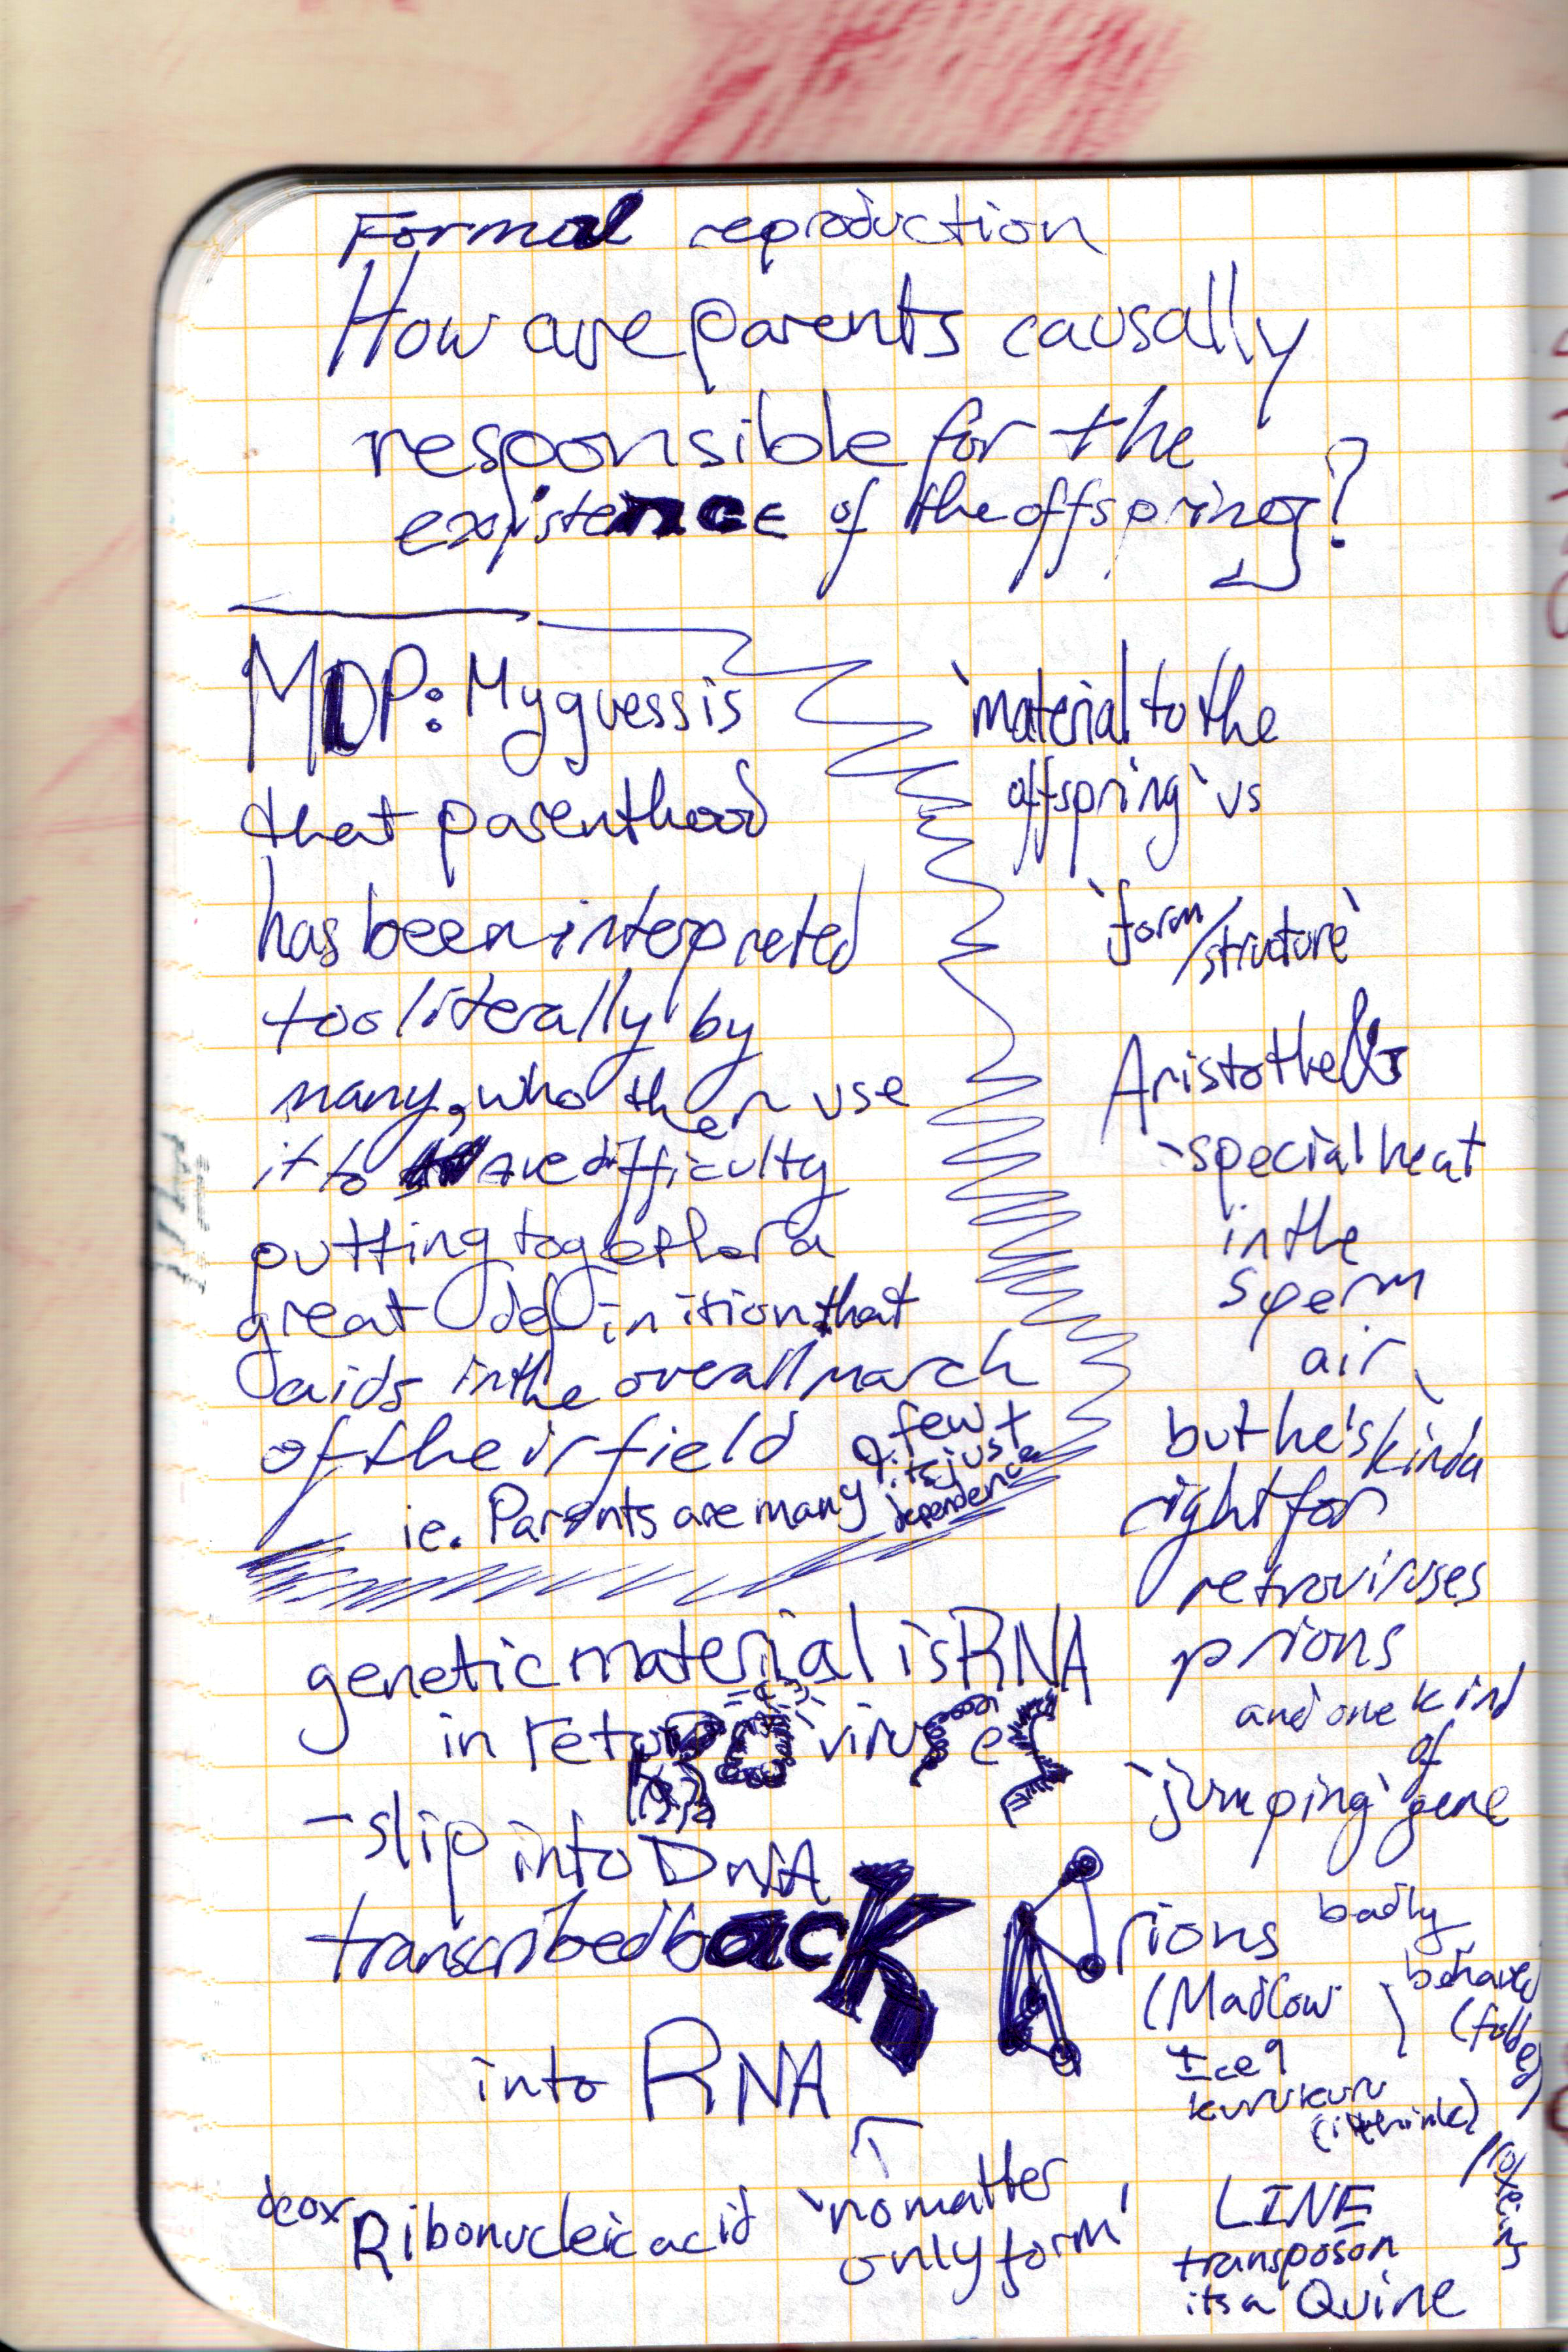 Formal reproduction
How are parents causally
responsible for the
existence of the offspring?
MDP: My guess is
that parenthood
has been interpreted
too literally by
many, who then use
it to are difficulty
putting together a
great definition that
aids in the overall march
of their field
ie. Parents are many
few +
its just
dependence
'material to the
offspring' vs
'form
/structure'
Aristotle
-special heat
in the
sperm
air
but he's kinda
right for
retroviruses
prions
and one kind
of
'jumping' gene
genetic material is RNA
in retroviruses
- slip into DNA
transcribed back
into RNA
'no matter
only form'
deox
Ribonucleic acid
Prions
(Mad Cow
Ice 9
kuru kuru
(i think)
badly
behaved
(folded)
proteins
LINE
transposon
its a Quine